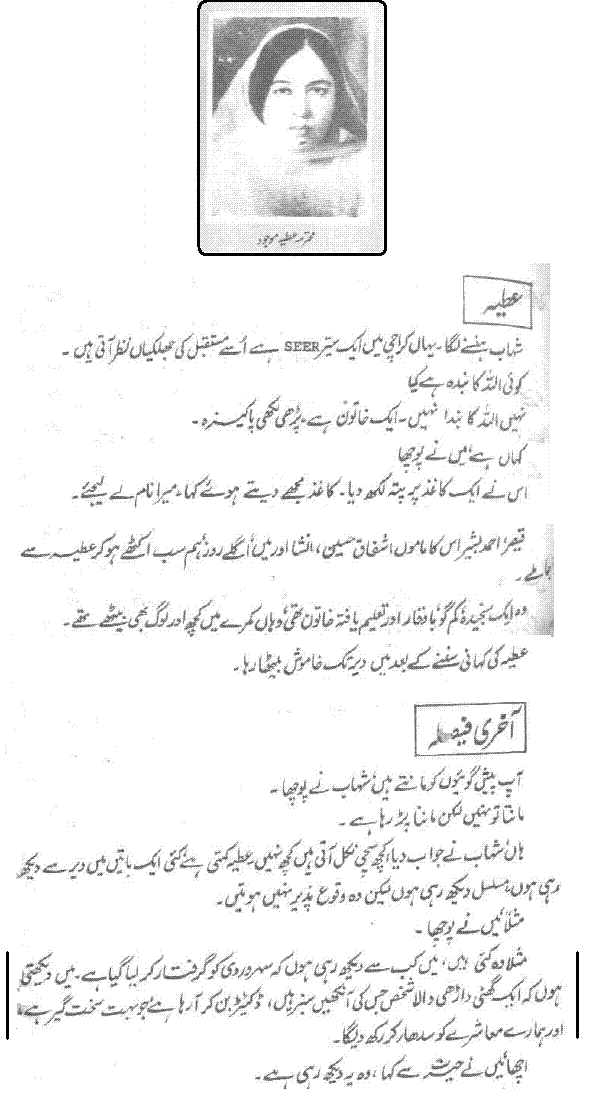 محترمہ عطیہ موجود
عطیہ
شہاب ہنسنے لگا۔ یہاں کراچی میں ایک سیئر SEER ہے اُسے مستقبل کی جھلکیاں نظر آتی ہیں۔
کوئی اللہ کا بندہ ہے کیا
نہیں اللہ کا بندا نہیں۔ ایک خاتون ہے، پڑھی لکھی پاکیزہ۔
کہاں ہے، میں نے پوچھا
اس نے ایک کاغذ پر پتہ لکھ دیا۔ کاغذ مجھے دیتے ہوئے کہا، میرا نام لے لیجئے۔
قیصر، احمد بشیر اس کا ماموں اشفاق حسین، انشا اور میں اگلے روز ہم سب اکٹھے ہو کر عطیہ سے
جا ملے۔
وہ ایک سنجیدہ، کم گو، باوقار اور تعلیم یافتہ خاتون تھی، وہاں کمرے میں کچھ اور لوگ بھی بیٹھے تھے۔
عطیہ کی کہانی سننے کے بعد میں دیر تک خاموش بیٹھا رہا۔
آخری فیصلہ
آپ پیش گوئیوں کو مانتے ہیں، شہاب نے پوچھا۔
مانتا تو نہیں لیکن ماننا پڑ رہا ہے۔
ہاں، شہاب نے جواب دیا، کچھ سچی نکل آتی ہیں کچھ نہیں۔ عطیہ کہتی ہے، کئی ایک باتیں میں دیر سے دیکھ
رہی ہوں، مسلسل دیکھ رہی ہوں لیکن وہ وقوع پذیر نہیں ہوتیں۔
مثلاً، میں نے پوچھا۔
مثلاً وہ کہتی ہیں، میں کب سے دیکھ رہی ہوں کہ سہروردی کو گرفتار کر لیا گیا ہے۔ میں دیکھتی
ہوں کہ ایک گھنی داڑھی والا شخص جس کی آنکھیں سبز ہیں، ڈکٹیٹر بن کر آ رہا ہے، جو بہت سخت گیر ہے
اور ہمارے معاشرے کو سدھار کر رکھ دیگا۔
اچھا، میں نے حیرت سے کہا، وہ یہ دیکھ رہی ہے۔